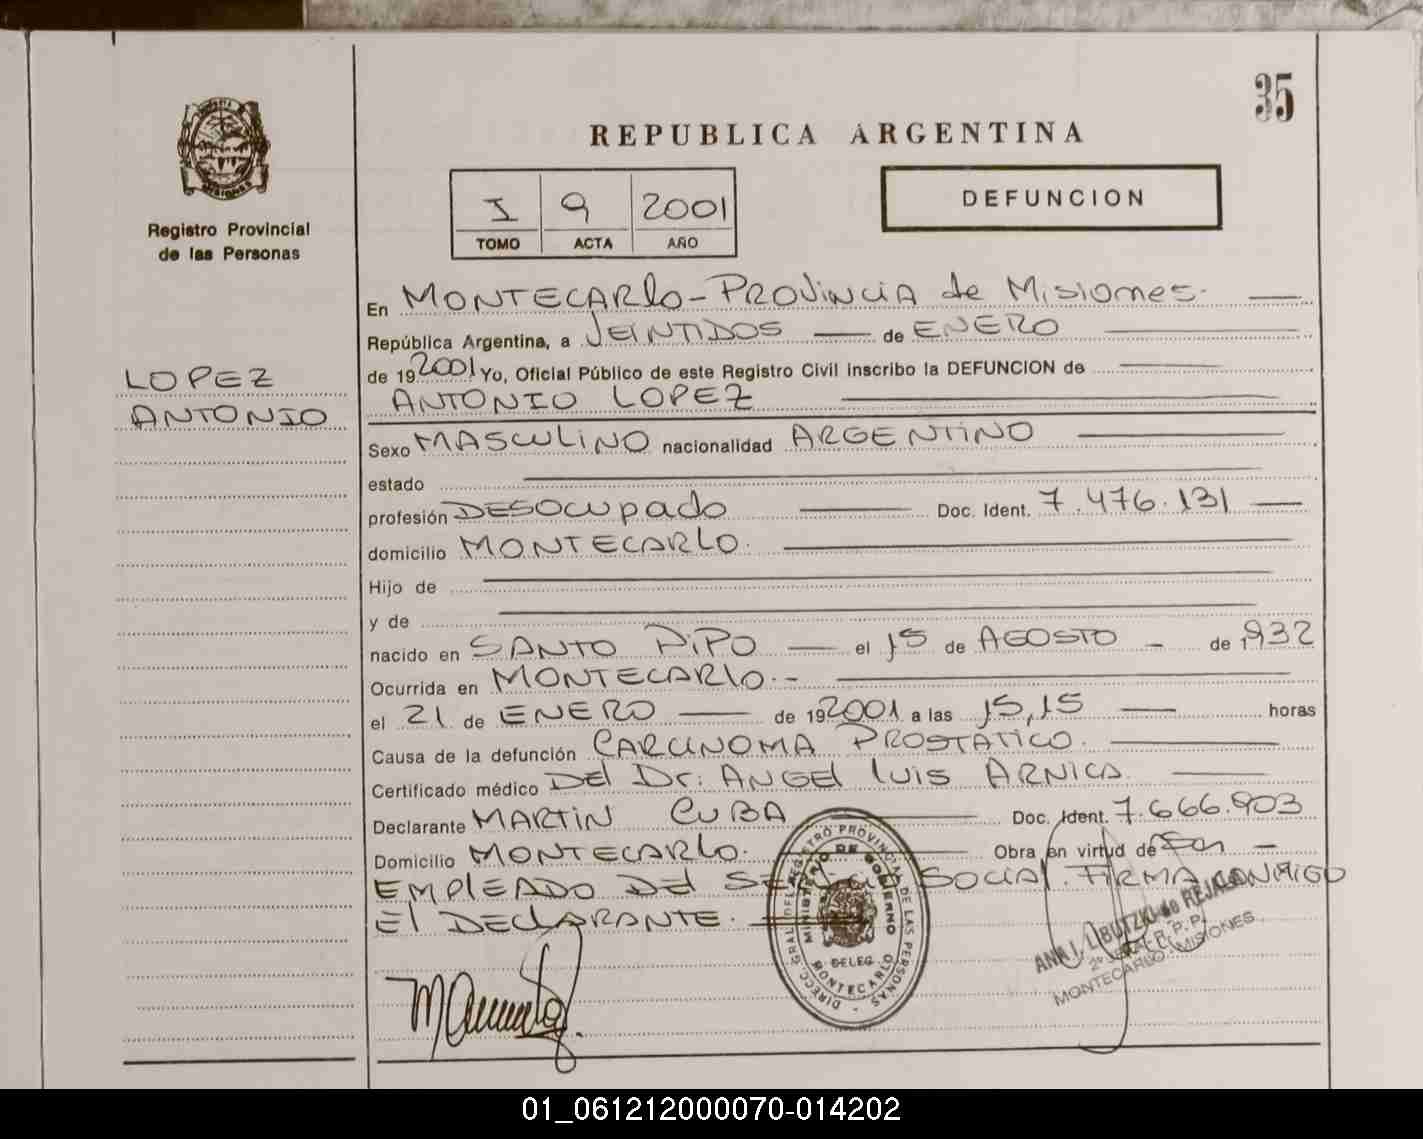 35
REPUBLICA ARGENTINA
I 9 2001
TOMO ACTA AÑO
DEFUNCION
Registro Provincial
de las Personas
LOPEZ
ANTONIO
En MONTECARlo - PROVINCIA de Misiones.
República Argentina, a VEINTIDOS de ENERO
de 19 2001 Yo, Oficial Público de este Registro Civil inscribo la DEFUNCION de
ANTONIO LOPEZ
Sexo MASCULINO nacionalidad ARGENTINO
estado
profesión DESOCUPADO Doc. Ident. 7.476.131
domicilio MONTECARLO.
Hijo de
y de
nacido en SANTO PIPO el 15 de AGOSTO de 1932
Ocurrida en MONTECARlo.-
el 21 de ENERO de 19 2001 a las 15,15 horas
Causa de la defunción CARCINOMA PROSTATICO.
Certificado médico DEl Dr: ANGEl luis ARNICA.
Declarante MARTIN CUBA Doc. Ident. 7.666.903
Domicilio MONTECARLO. Obra en virtud de
EMPlEADO DEl SOCIAl. FIRMA CONMIGO
El DEClARANTE.
DIRECC. GRAL. DEL REGISTRO PROVINCIAL DE LAS PERSONAS
MINISTERIO DE GOBIERNO
DELEG.
MONTECARLO
ANA I. LIBUTZKI de REJALA
MONTECARLO - MISIONES
01_061212000070-014202